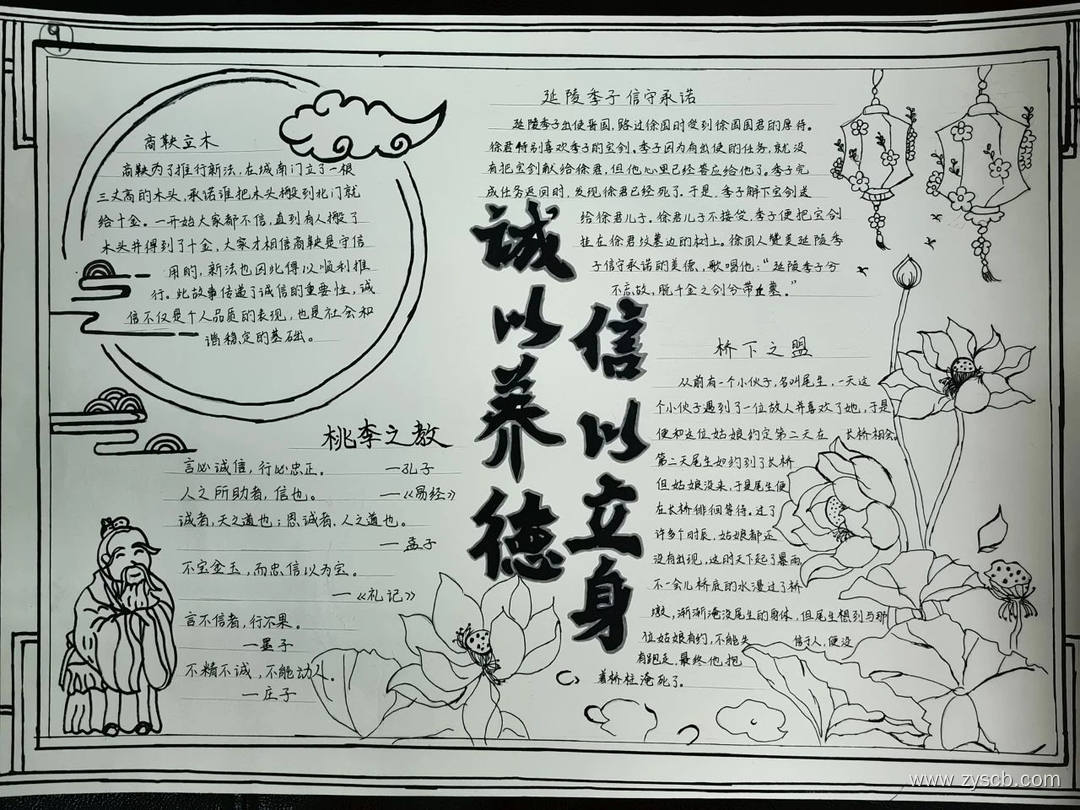 9
商鞅立木
商鞅为了推行新法,在城南门立了一根
三丈高的木头,承诺谁把木头搬到北门就
给十金。一开始大家都不信,直到有人搬了
木头并得到了十金,大家才相信商鞅是守信
用的,新法也因此得以顺利推
行。此故事传递了诚信的重要性,诚
信不仅是个人品质的表现,也是社会和
谐稳定的基础。
桃李之教
言必诚信,行必忠正。 —孔子
人之所助者,信也。 —《易经》
诚者,天之道也;思诚者,人之道也。
—孟子
不宝金玉,而忠信以为宝。
—《礼记》
言不信者,行不果。
—墨子
不精不诚,不能动人。
—庄子
诚以养德
信以立身
延陵季子信守承诺
延陵季子出使晋国,路过徐国时受到徐国国君的厚待。
徐君特别喜欢季子的宝剑,季子因为有出使的任务,就没
有把宝剑献给徐君,但他心里已经答应给他了。季子完
成任务返回时,发现徐君已经死了。于是,季子解下宝剑送
给徐君儿子。徐君儿子不接受,季子便把宝剑
挂在徐君坟墓边的树上。徐国人赞美延陵季
子信守承诺的美德,歌唱他:“延陵季子兮
不忘故,脱千金之剑兮带丘墓。”
桥下之盟
从前有一个小伙子,名叫尾生,一天这
个小伙子遇到了一位故人并喜欢了她,于是
便和这位姑娘约定第二天在 长桥相会。
第二天尾生如约到了长桥
但姑娘没来,于是尾生便
在长桥徘徊等待。过了
许多个时辰,姑娘都还
没有出现,这时天下起了暴雨
不一会儿桥底的水漫过了桥
墩,渐渐淹没尾生的身体,但尾生想到与那
位姑娘有约,不能失 信于人,便没
有跑走,最终他,抱
着桥柱淹死了。
www.zyscb.com